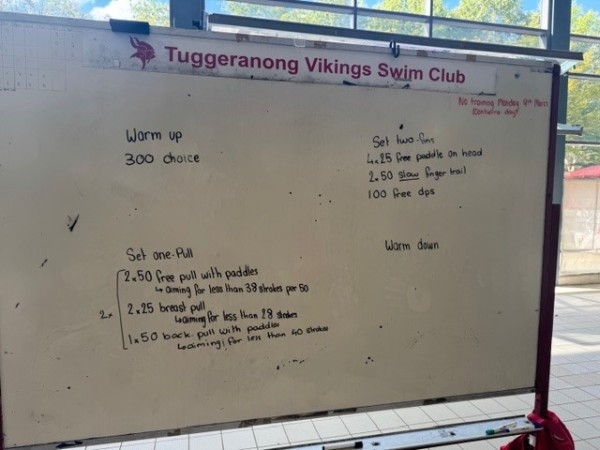 Tuggeranong Vikings Swim Club
No training Monday 11th March
Canberra day!
Warm up
300 choice
Set one-Pull
2x 2x50 free pull with paddles
↳ aiming for less than 38 strokes per 50
2x25 breast pull
↳ aiming for less than 28 strokes
1x50 back pull with paddles
↳ aiming for less than 40 strokes
Set two-fins
4x25 free paddle on head
2x50 slow finger trail
100 free dps
Warm down